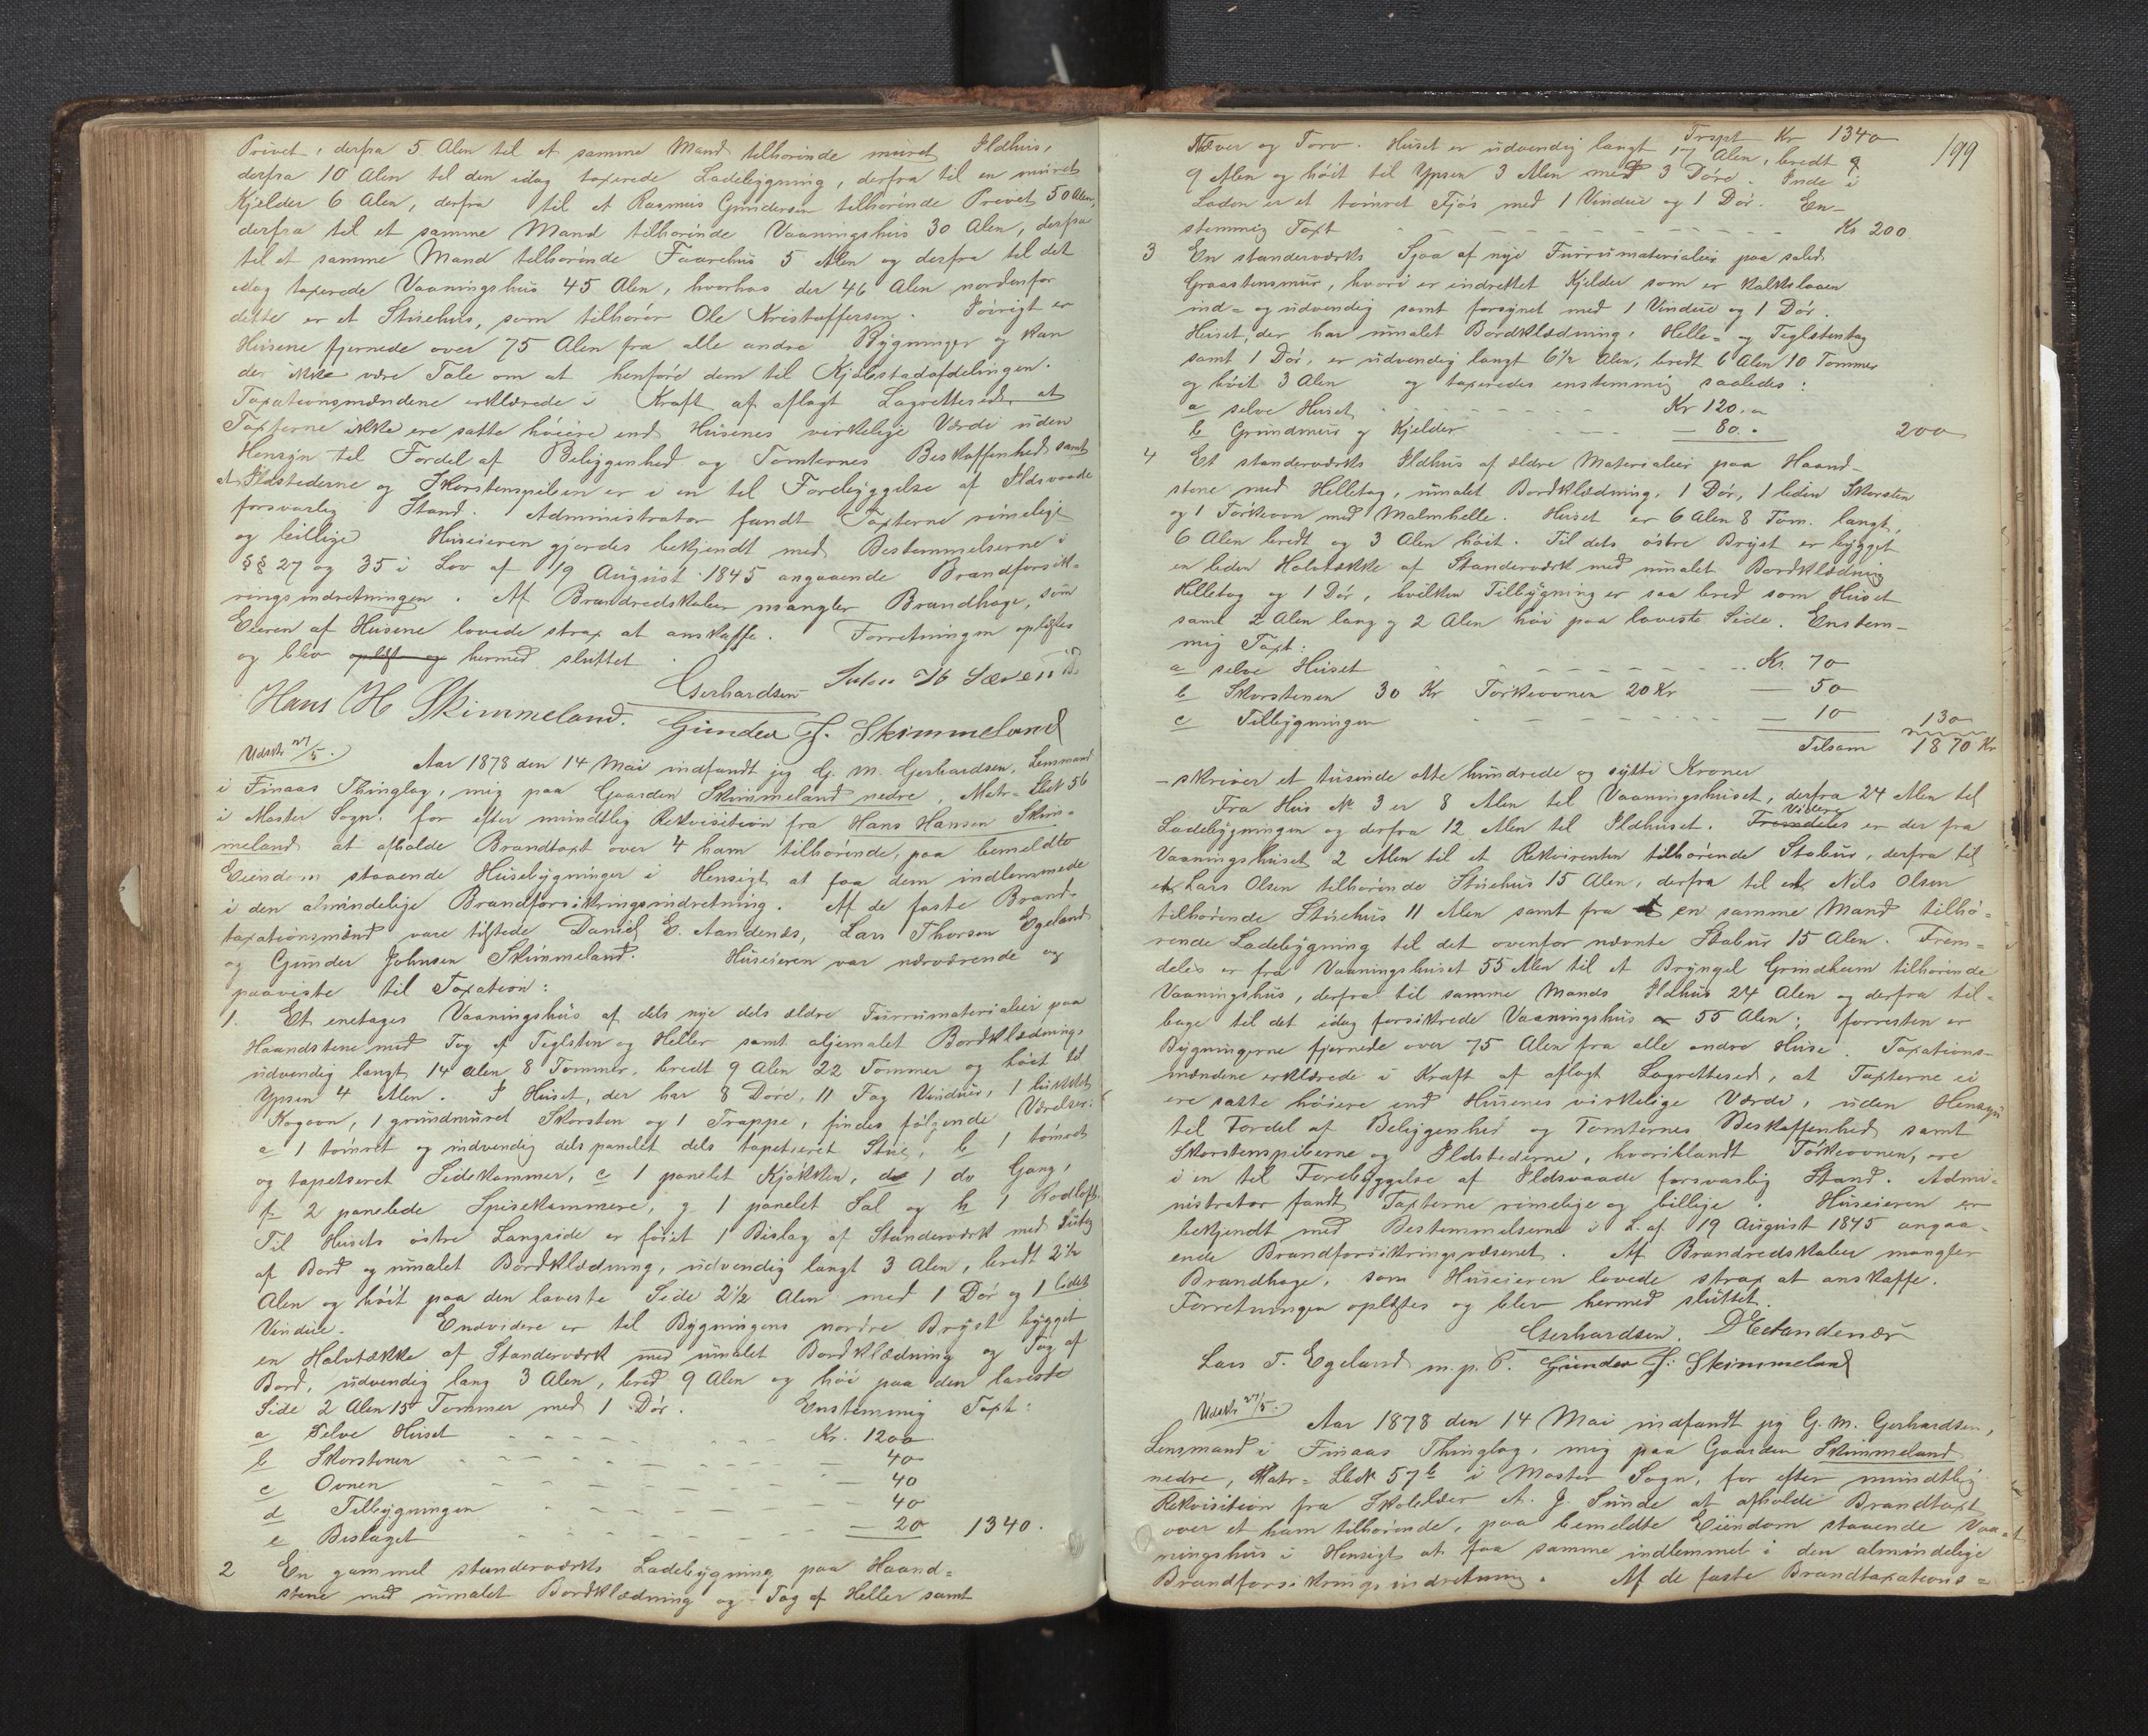 Privet, derfra 5 Alen til et samme Mand tilhørende muret Ildhus,
derfra 10 Alen til den idag taxerede Ladebygning, derfra til en muret
Kjelder 6 Alen, derfra til et Rasmus Gundersen tilhørende Privet 50 Alen,
derfra til et samme Mand tilhørende Vaaningshus 30 Alen, derfra
til et samme Mand tilhørende Faarehus 5 Alen og derfra til det
idag taxerede Vaaningshus 45 Alen, hvorhos der 46 Alen nordenfor
dette er et Stuehus, som tilhører Ole Kristoffersen. Iøvrigt er
Husene fjernede over 75 Alen fra alle andre Bygninger og kan
der ikke være Tale om at henføre dem til Kjøbstadafdelingen.
Taxationsmændene erklærede i Kraft af aflagt Lagrettesed at
Taxterne ikke ere satte høiere end Husenes virkelige Værdi uden
Hensyn til Fordel af Beliggenhed og Tomternes Beskaffenhed samt
at Ildstederne og Skorstenspiben er i en til Forebyggelse af Ildsvaade
forsvarlig Stand. Administrator fandt Taxterne rimelige
og billige Huseieren gjordes bekjendt med Bestemmelserne i
§§ 27 og 35 i Lov af 19 August 1845 angaaende Brandforsik-
ringsindretningen. Af Brandredskaber mangler Brandhage, som
Eieren af Husene lovede strax at anskaffe. Forretningen oplæstes
og blev oplæst og hermed sluttet.
Gerhardsen
Hans H Skimmeland. Gunder J. Skimmeland
Udskr 27/5.) Aar 1878 den 14 Mai indfandt jeg G. M. Gerhardsen, Lensmand
i Finaas Thinglag, mig paa Gaarden Skimmeland nedre, Matr-Lbk 56
i Moster Sogn, for efter mundtlig Rekvisition fra Hans Hansen Skim-
meland at afholde Brandtaxt over 4 ham tilhørende, paa bemeldte
Eiendom staaende Husebygninger i Hensigt at faa dem indlemmede
i den almindelige Brandforsikringsindretning. Af de faste Brand-
taxationsmænd vare tilstede Daniel E. Aandenæs, Lars Thorsen Egeland
og Gunder Johnsen Skimmeland. Huseieren var nærværende og
paaviste til Taxation:
1. Et enetages Vaaningshus af dels nye dels ældre Furrumaterialier paa
Haandstene med Tag af Teglsten og Heller samt oljemalet Bordklædnings
udvendig langt 14 Alen 8 Tommer, bredt 9 Alen 22 Tommer og høit til
Ypsen 4 Alen. I Huset, der har 8 Døre, 11 Fag Vinduer, 1
Kogovn, 1 grundmuret Skorsten og 1 Trappe, findes følgende Værelser:
a 1 tømret og indvendig dels panelet dels tapetseret Stue, b 1 tømret
og tapetseret Sidekammer, c 1 panelet Kjøkken, d 1 do Gang,
f 2 panelede Spisekammere, g 1 panelet Sal og h 1 Rodloft.
Til Husets østre Langside er føiet 1 Bislag af Standerværk med Sutag
af Bord og umalet Bordklædning, udvendig langt 3 Alen, bredt 2½
Alen og høit paa den laveste Side 2½ Alen med 1 Dør og 1 lidet
Vindue. Endvidere er til Bygningens nordre Bryst bygget
en Halvtække af Standerværk med umalet Bordklædning og Tag af
Bord, udvendig lang 3 Alen, bred 9 Alen og høi paa den laveste
Side 2 Alen 15 Tommer med 1 Dør. Enstemmig Taxt:
a Selve Huset Kr. 1200
b Skorstenen — 40
c Ovnen — 40
d Tilbygningen — 40
e Bislaget — 20 1340.
2 En gammel standerværks Ladebygning paa Haand-
stene med umalet Bordklædning og Tag af Heller samt
Trspt Kr 1340 199
Næver og Torv. Huset er udvendig langt 17 Alen, bredt
9 Alen og høit til Ypsen 3 Alen med 3 Døre. Inde i
Laden er et tømret Fjøs med 1 Vindue og 1 Dør. En-
stemmig Taxt Kr 200
3 En standerværks Sjaa af nye Furrumaterialier paa solid
Graastensmur, hvori er indrettet Kjelder som er kalkslaaen
ind- og udvendig samt forsynet med 1 Vindue og 1 Dør.
Huset, der har umalet Bordklædning, Helle- og Teglstentag
samt 1 Dør, er udvendig langt 6½ Alen, bredt 6 Alen 10 Tommer
og høit 3 Alen og taxeredes enstemmig saaledes:
a selve Huset Kr 120.
b Grundmur og Kjelder — 80. 200
4 Et standerværks Ildhus af ældre Materialier paa Haand-
stene med Helletag, umalet Bordklædning, 1 Dør, 1 liden Skorsten
og 1 Tørkeovn med Malmhelle. Huset er 6 Alen 8 Tom. langt,
6 Alen bredt og 3 Alen høit. Til dets østre Bryst er bygget
en liden Halvtække af Standerværk med umalet Bordklædning
Helletag og 1 Dør, hvilken Tilbygning er saa bred som Huset
samt 2 Alen lang og 2 Alen høi paa laveste Side. Enstem-
mig Taxt:
a selve Huset Kr. 70
b Skorstenen 30 Kr Tørkeovnen 20 Kr — 50
c Tilbygningen — 10 130
Tilsam 1870 Kr
— skriver et tusinde otte hundrede og sytti Kroner
Fra Hus № 3 er 8 Alen til Vaaningshuset, derfra 24 Alen til
Ladebygningen og derfra 12 Alen til Ildhuset. Fremdeles Videre er der fra
Vaaningshuset 2 Alen til et Rekvirenten tilhørende Stabur, derfra til
et Lars Olsen tilhørende Stuehus 15 Alen, derfra til et Nils Olsen
tilhørende Stuehus 11 Alen samt fra en samme Mand tilhø-
rende Ladebygning til det ovenfor nævnte Stabur 15 Alen. Frem-
deles er fra Vaaningshuset 55 Alen til et Bryngel Grindheim tilhørende
Vaaningshus, derfra til samme Mands Ildhus 24 Alen og derfra til-
bage til det idag forsikrede Vaaningshus 55 Alen; forresten er
Bygningerne fjernede over 75 Alen fra alle andre Huse. Taxations-
mændene erklærede i Kraft af aflagt Lagrettesed, at Taxterne ei
ere satte høiere end Husenes virkelige Værdi, uden Hensyn
til Fordel af Beliggenhed og Tomternes Beskaffenhed samt
Skorstenspiberne og Ildstederne, hvoriblandt Tørkeovnen, ere
i en til Forebyggelse af Ildsvaade forsvarlig Stand. Admi-
nistrator fandt Taxterne rimelige og billige. Huseieren er
bekjendt med Bestemmelserne i L. af 19 August 1845 angaa-
ende Brandforsikringsvæsenet. Af Brandredskaber mangler
Brandhage, som Huseieren lovede strax at anskaffe.
Forretningen oplæstes og blev hermed sluttet.
Gerhardsen. DEetandenæs
Lars T. Egeland m. p. P. Gunder J: Skimmeland
Udskr 27/5.) Aar 1878 den 14 Mai indfandt jeg G. M. Gerhardsen,
Lensmand i Finaas Thinglag, mig paa Gaarden Skimmeland
nedre, Matr- Lbk 57b i Moster Sogn, for efter mundtlig
Rekvisition fra Skolelær A. J. Sunde at afholde Brandtaxt
over et ham tilhørende, paa bemeldte Eiendom staaende Vaa-
ningshus i Hensigt at faa samme indlemmet i den almindelige
Brandforsikringsindretning. Af de faste Brandtaxations-